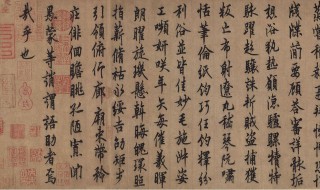 牋牒簡要顧答審詳骸
垢想浴執熱願涼驢騾犢特
駭躍超驤誅斬賊盜捕獲
叛亡布射遼丸嵇琴阮嘯
恬筆倫紙鈞巧任釣釋紛
利俗並皆佳妙毛施淑姿
工嚬妍咲年矢每催羲暉
朗曜璇璣懸斡晦魄環照
指薪脩祜永綏吉劭矩步
引領俯仰廊廟束帶矜
莊徘徊瞻眺孤陋寡聞
愚蒙等誚謂語助者焉
哉乎也